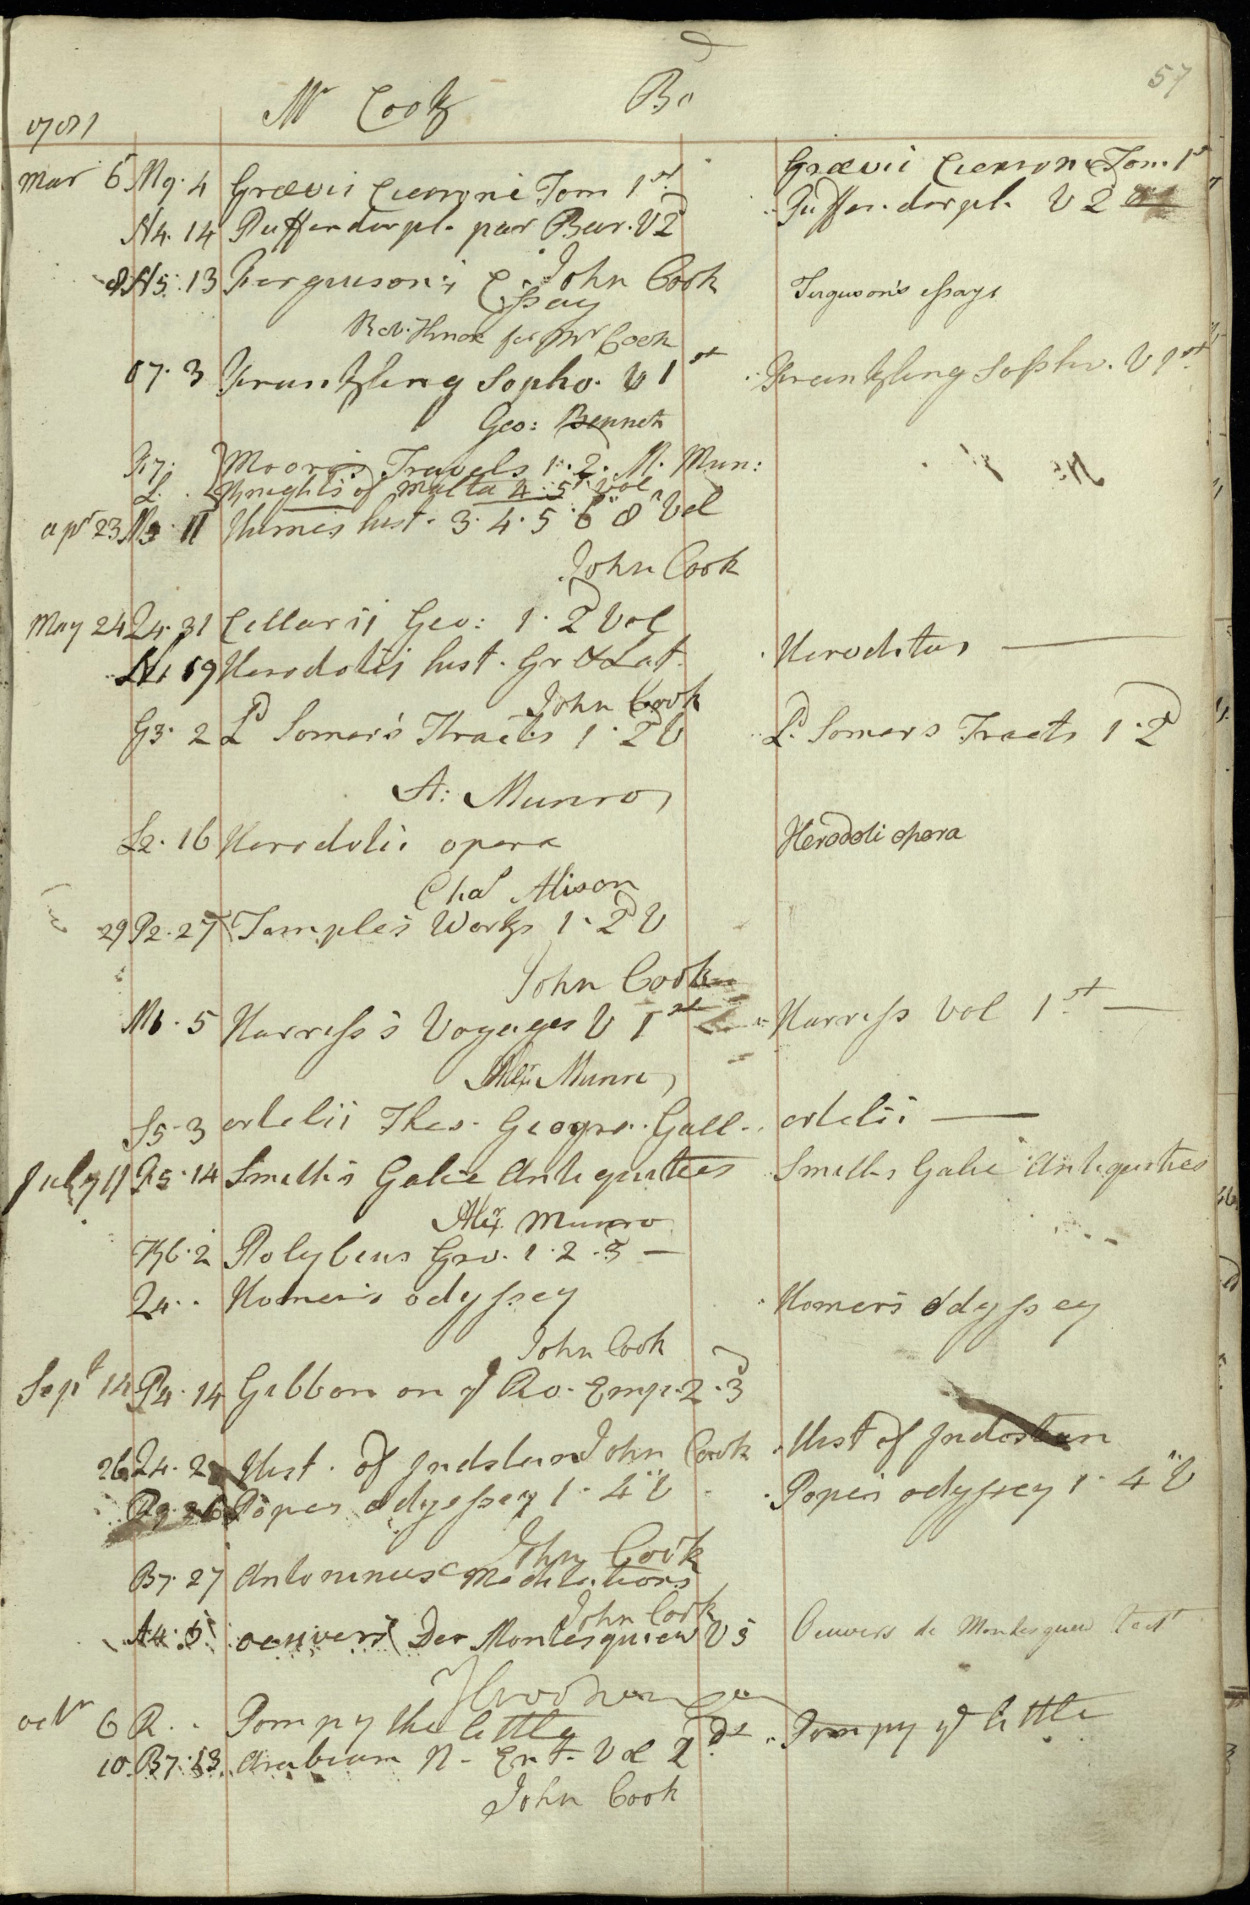 57
1781 Mr Cook Bo
Mar 6 M9. 4 Grævii Ciceroni Tom 1st Grævii Ciceron Tom 1st
N4. 14 Puffendorph par Bar. V 2d Puffendorph V 2
John Cook
8 N5. 13 Ferguson's Essay Ferguson's essays
Rob. Knox for Mr Cook
O7. 3 Franklling Sopho. V 1st Franklling Sopho. V 1st
Geo: Bennet
F7. Moore's Travels 1. 2. A. Mun:
L. Knights of Malta 4. 5 Vol
apr 23 M3 11 Humes hist. 3. 4. 5 6 8 Vol
John Cook
May 24 Q4. 31 Cellarii Geo: 1. 2d Vol
19 Herodotii hist. Gr & Lat. Heroditus
John Cook
G3. 2 Ld Somers's Thracts 1. 2d V Ld Somers Tracts 1. 2d
A: Munro
L2. 16 Herodoti opera Herodoti opera
Chas Alison
29 P2. 27 Temple's Works 1. 2d V
John Cook
M6. 5 Harress's Voyages V 1st Harress Vol 1st
Alex: Munro
S5. 3 ortelii Thes. Geogra. Gall. ortelii
July 11 P5. 14 Smith's Galic Antiquitees Smith's Galic Antiquities
Alex. Munro
K6. 2 Polybeus Gro. 1. 2. 3
Q4. . Homer's odyssey Homers odyssey
John Cook
Sept 14 P4. 14 Gibbon on ye Ro. Emp. 2. 3d
John Cook
26 Q4. 2 Hist. of Indstan Hist of Indostan
Popes odyessey 1. 4 V Popes odyssey 1. 4 V
John Cook
B7. 27 Antoninus Meditations
John Cook
A4. 5 oeuvers Der Montesquiew V 3 Oeuvers de Montesquieu
octr 6 R. . Pompy the little Pompy ye little
10 B7. 13 Arabian N. Ent. Vol 2d
John Cook